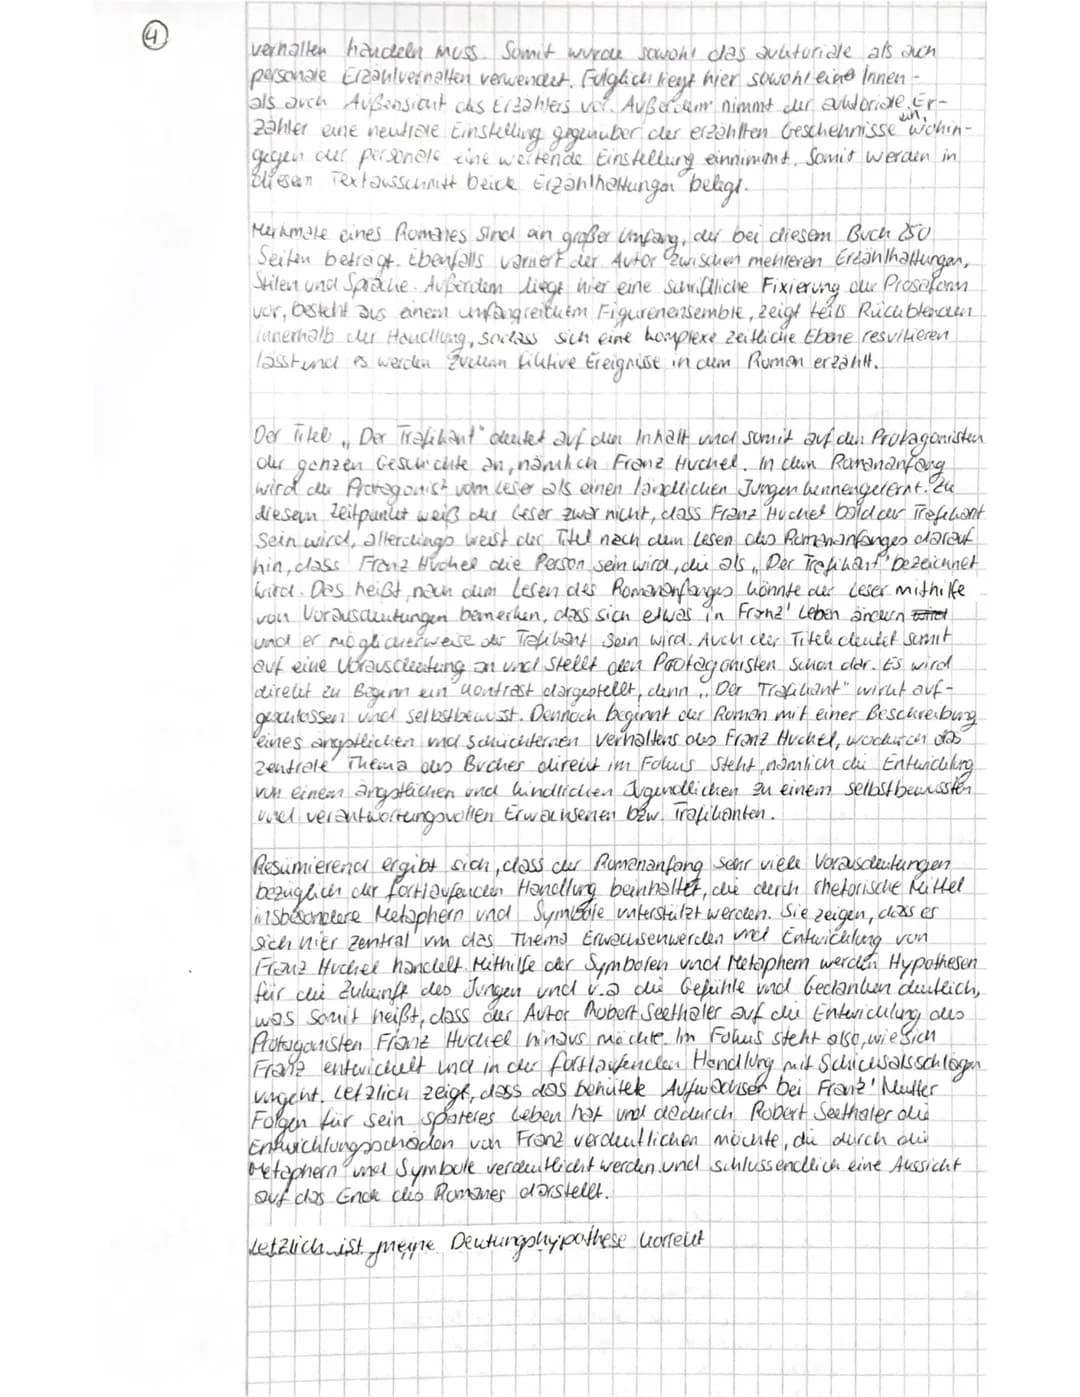 4
verhalten handeln muss. Somit wurde sowohl das auktoriale als auch
personale Erzählverhalten verwendet. Folglich liegt hier sowohl eine Innen-
als auch Außensicht des Erzählers vor. Außerdem nimmt der auktoriale Er-
zähler eine neutrale Einstellung gegenüber der erzählten Geschehnisse ein, wohin-
gegen der personale eine wertende Einstellung einnimmt. Somit werden in
diesem Textausschnitt beide Erzählhaltungen belegt.
Merkmale eines Romanes sind ein großer Umfang, der bei diesem Buch 250
Seiten beträgt. Ebenfalls variiert der Autor zwischen mehreren Erzählhaltungen,
Stilen und Sprache. Außerdem liegt hier eine schriftliche Fixierung der Prosaform
vor, besteht aus einem umfangreichem Figurenensemble, zeigt teils Rückblenden
innerhalb der Handlung, sodass sich eine komplexe zeitliche Ebene resultieren
lässt und es werden zudem fiktive Ereignisse in dem Roman erzählt.
Der Titel „Der Trafikant" deutet auf den Inhalt und somit auf den Protagonisten
der ganzen Geschichte an, nämlich Franz Huchel. In dem Romananfang
wird der Protagonist vom Leser als einen ländlichen Jungen kennengelernt. Zu
diesem Zeitpunkt weiß der Leser zwar nicht, dass Franz Huchel bald der Trafikant
sein wird, allerdings weist der Titel nach dem Lesen des Romananfanges darauf
hin, dass Franz Huchel die Person sein wird, die als „Der Trafikant" bezeichnet
wird. Das heißt, nach dem Lesen des Romananfanges könnte der Leser mithilfe
von Vorausdeutungen bemerken, dass sich etwas in Franz' Leben ändern wird
und er möglicherweise der Trafikant sein wird. Auch der Titel deutet somit
auf eine Vorausdeutung an und stellt den Protagonisten schon dar. Es wird
direkt zu Beginn ein Kontrast dargestellt, denn „Der Trafikant" wirkt auf-
geschlossen und selbstbewusst. Dennoch beginnt der Roman mit einer Beschreibung
eines ängstlichen und schüchternen Verhaltens des Franz Huchel, wodurch das
zentrale Thema des Buches direkt im Fokus steht, nämlich die Entwicklung
von einem ängstlichen und kindlichen Jugendlichen zu einem selbstbewussten
und verantwortungsvollen Erwachsenen bzw. Trafikanten.
Resümierend ergibt sich, dass der Romananfang sehr viele Vorausdeutungen
bezüglich der fortlaufenden Handlung beinhaltet, die durch rhetorische Mittel
insbesondere Metaphern und Symbole unterstützt werden. Sie zeigen, dass es
sich hier zentral um das Thema Erwachsenwerden und Entwicklung von
Franz Huchel handelt. Mithilfe der Symbolen und Metaphern werden Hypothesen
für die Zukunft des Jungen und v.a die Gefühle und Gedanken deutlich,
was somit heißt, dass der Autor Robert Seethaler auf die Entwicklung des
Protagonisten Franz Huchel hinaus möchte. Im Fokus steht also, wie sich
Franz entwickelt und in der fortlaufenden Handlung mit Schicksalsschlägen
umgeht. Letzlich zeigt, dass das behütete Aufwachsen bei Franz' Mutter
Folgen für sein späteres Leben hat und dadurch Robert Seethaler die
Entwicklungsschäden von Franz verdeutlichen möchte, die durch die
Metaphern und Symbole verdeutlicht werden und schlussendlich eine Aussicht
auf das Ende des Romanes darstellt.
Letzlich ist meine Deutungshypothese korrekt